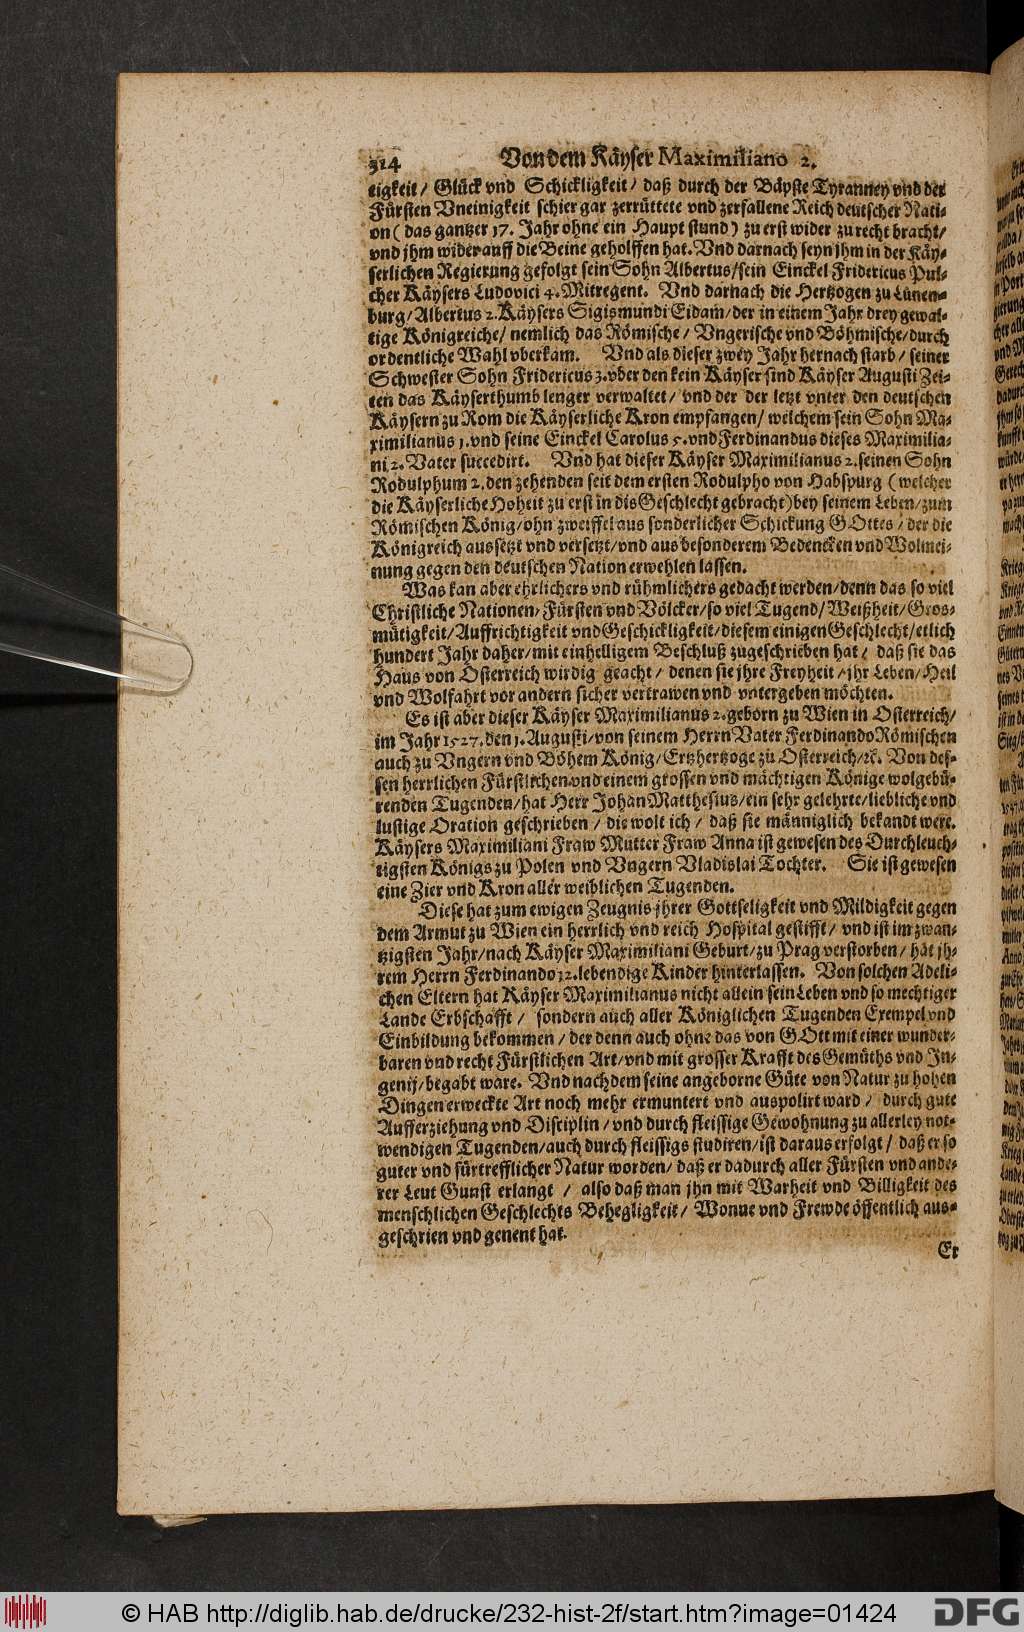 314 Von dem Käyser Maximiliano 2.
tigkeit / Glück vnd Schickligkeit / daß durch der Bäpste Tyranney vnd der
Fürsten Vneinigkeit schier gar zerrüttete vnd zerfallene Reich deutscher Nati-
on ( das gantzer 17. Jahr ohne ein Haupt stund ) zu erst wider zu recht bracht /
vnd jhm wider auff die Beine geholffen hat. Vnd darnach seyn jhm in der Käy-
serlichen Regierung gefolgt sein Sohn Albertus / sein Einckel Fridericus Pul-
cher Käysers Ludovici 4. Mitregent. Vnd darnach die Hertzogen zu Lünen-
burg / Albertus 2. Käysers Sigismundi Eidam / der in einem Jahr drey gewal-
tige Königreiche / nemlich das Römische / Vngerische vnd Böhmische / durch
ordentliche Wahl vberkam. Vnd als dieser zwey Jahr hernach starb / seiner
Schwester Sohn Fridericus 3. vber den kein Käyser sind Käyser Augusti Zei-
ten das Käyserthumb lenger verwaltet / vnd der der letzt vnter den deutschen
Käysern zu Rom die Käyserliche Kron empfangen / welchem sein Sohn Ma-
ximilianus 1. vnd seine Einckel Carolus 5. vnd Ferdinandus dieses Maximilia-
ni 2. Vater succedirt. Vnd hat dieser Käyser Maximilianus 2. seinen Sohn
Rodulphum 2. den zehenden seit dem ersten Rodulpho von Habspurg ( welcher
die Käyserliche Hoheit zu erst in dis Geschlecht gebracht ) bey seinem Leben / zum
Römischen König / ohn zweiffel aus sonderlicher Schickung GOttes / der die
Königreich aussetzt vnd versetzt / vnd aus besonderem Bedencken vnd Wolmei-
nung gegen den deutschen Nation erwehlen lassen.
Was kan aber ehrlichers vnd rühmlichers gedacht werden / denn das so viel
Christliche Nationen / Fürsten vnd Völcker / so viel Tugend / Weißheit / Gros-
mütigkeit / Auffrichtigkeit vnd Geschickligkeit / diesem einigen Geschlecht / etlich
hundert Jahr daher / mit einhelligem Beschluß zugeschrieben hat / daß sie das
Haus von Osterreich wirdig geacht / denen sie jhre Freyheit / jhr Leben / Heil
vnd Wolfahrt vor andern sicher vertrawen vnd vntergeben möchten.
Es ist aber dieser Käyser Maximilianus 2. geborn zu Wien in Osterreich /
im Jahr 1527. den 1. Augusti / von seinem Herrn Vater Ferdinando Römischen
auch zu Vngern vnd Böhem König / Ertzhertzoge zu Osterreich / ꝛc. Von des-
sen herrlichen Fürstlichen vnd einem grossen vnd mächtigen Könige wolgebü-
renden Tugenden / hat Herr Johan Matthesius / ein sehr gelehrte / liebliche vnd
lustige Oration geschrieben / die wolt ich / daß sie männiglich bekandt were.
Käysers Maximiliani Fraw Mutter Fraw Anna ist gewesen des Durchleuch-
tigsten Königs zu Polen vnd Vngern Vladislai Tochter. Sie ist gewesen
eine Zier vnd Kron aller weiblichen Tugenden.
Diese hat zum ewigen Zeugnis jhrer Gottseligkeit vnd Mildigkeit gegen
dem Armut zu Wien ein herrlich vnd reich Hospital gestifft / vnd ist im zwan-
tzigsten Jahr / nach Käyser Maximiliani Geburt / zu Prag verstorben / hat jh-
rem Herrn Ferdinando 12. lebendige Kinder hinterlassen. Von solchen Adeli-
chen Eltern hat Käyser Maximilianus nicht allein sein Leben vnd so mechtiger
Lande Erbschafft / sondern auch aller Königlichen Tugenden Exempel vnd
Einbildung bekommen / der denn auch ohne das von GOtt mit einer wunder-
baren vnd recht Fürstlichen Art / vnd mit grosser Krafft des Gemüths vnd In-
genij / begabt ware. Vnd nachdem seine angeborne Güte von Natur zu hohen
Dingen erweckte Art noch mehr ermuntert vnd auspolirt ward / durch gute
Aufferziehung vnd Disciplin / vnd durch fleissige Gewohnung zu allerley not-
wendigen Tugenden / auch durch fleissigs studiren / ist daraus erfolgt / daß er so
guter vnd fürtrefflicher Natur worden / daß er dadurch aller Fürsten vnd ande-
rer Leut Gunst erlangt / also daß man jhn mit Warheit vnd Billigkeit des
menschlichen Geschlechts Behegligkeit / Wonne vnd Frewde öffentlich aus-
geschrien vnd genent hat.
Er
© HAB http://diglib.hab.de/drucke/232-hist-2f/start.htm?image=01424
DFG